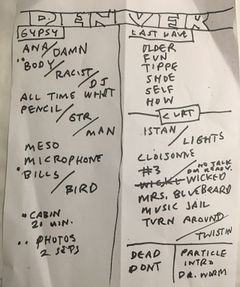 DENVER
GYPSY
ANA/DAMN
BODY/RACIST/DJ
ALL TIME WHAT
PENCIL/GTR/MAN
MESO
MICROPHONE
BILLS/BIRD
CABIN
21 MIN.
PHOTOS
2 SEPS
LAST WAVE
OLDER
FUN
TIPPE
SHOE
SELF
HOW
CURT
ISTAN/LIGHTS
CLOISONNE
#3 NO TALK
DM READY.
WICKED
MRS. BLUEBEARD
MUSIC JAIL
TURN AROUND/TWISTIN
DEAD
DONT
PARTICLE
INTRO
DR. WORM